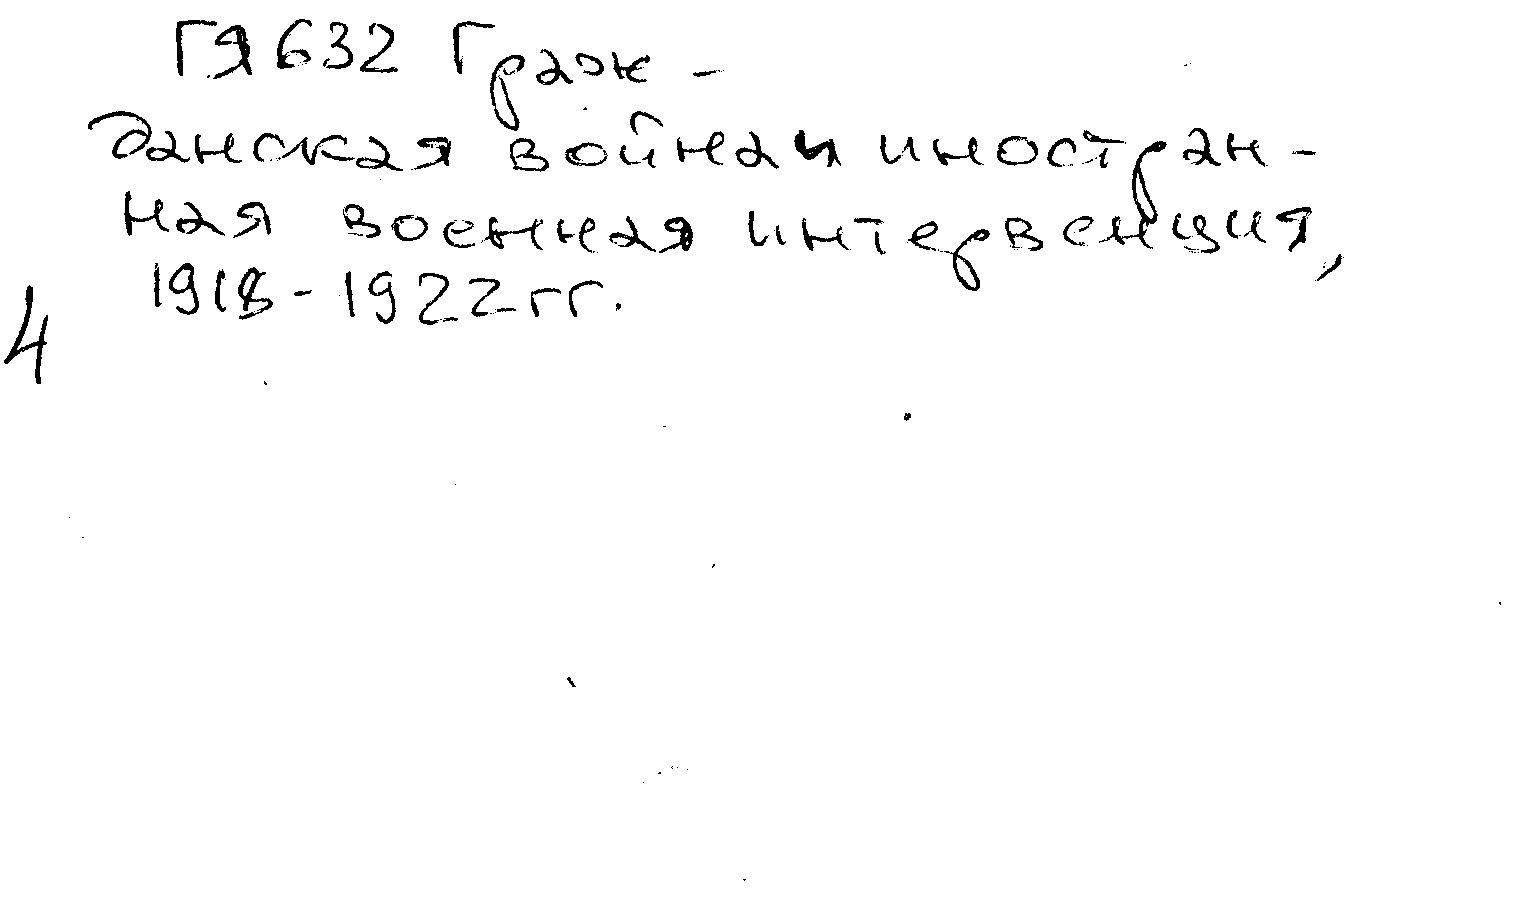 ГЯ632 Граж-
данская война и иностран-
ная военная интервенция,
1918-1922 гг.
4